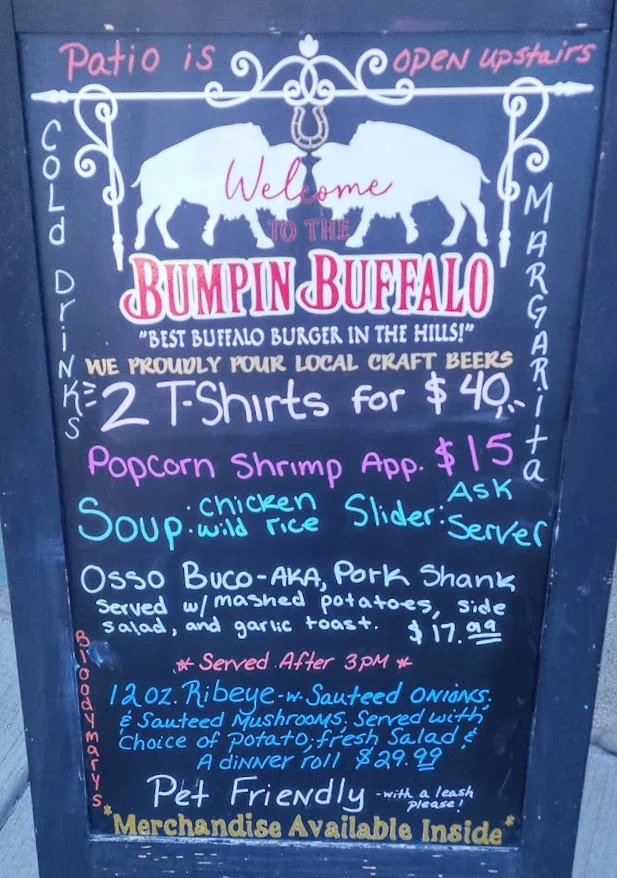 Patio is open upstairs
Cold Drinks
Margarita
Welcome
TO THE
BUMPIN BUFFALO
"BEST BUFFALO BURGER IN THE HILLS!"
WE PROUDLY POUR LOCAL CRAFT BEERS
2 T-Shirts for $40
Popcorn Shrimp App. $15
Soup: chicken wild rice
Slider: Ask Server
Osso Buco-AKA, Pork Shank
Served w/ mashed potatoes, side
salad, and garlic toast. $17.99
Bloodymarys
* Served After 3pm *
12oz. Ribeye -w- Sauteed onions,
& Sauteed Mushrooms, Served with
Choice of potato, fresh Salad &
A dinner roll $29.99
Pet Friendly -with a leash please!
*Merchandise Available Inside*